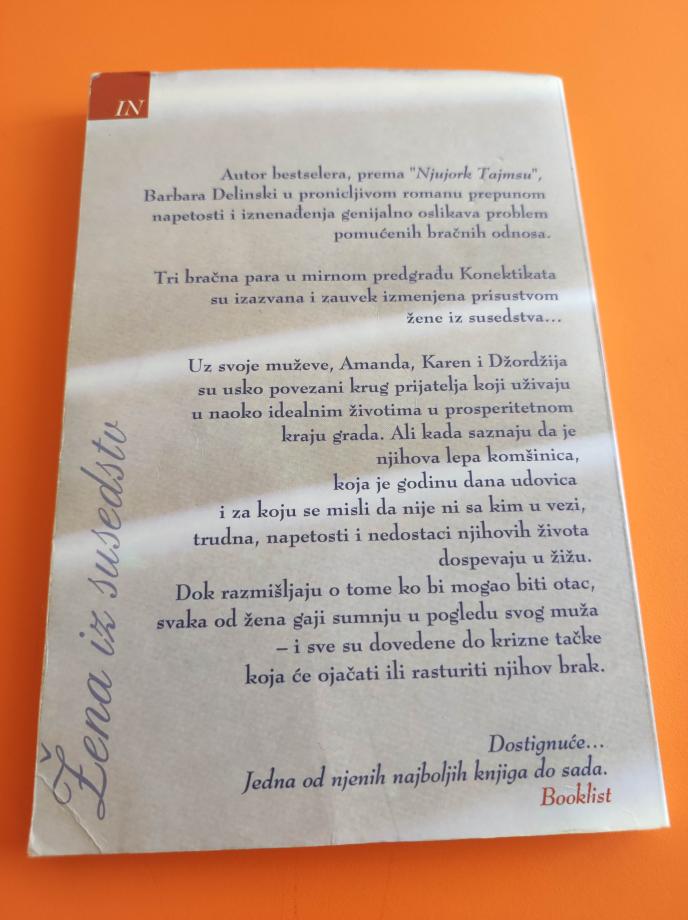 IN
Autor bestselera, prema "Njujork Tajmsu",
Barbara Delinski u pronicljivom romanu prepunom
napetosti i iznenađenja genijalno oslikava problem
pomućenih bračnih odnosa.
Tri bračna para u mirnom predgrađu Konektikata
su izazvana i zauvek izmenjena prisustvom
žene iz susedstva...
Uz svoje muževe, Amanda, Karen i Džordžija
su usko povezani krug prijatelja koji uživaju
u naoko idealnim životima u prosperitetnom
kraju grada. Ali kada saznaju da je
njihova lepa komšinica,
koja je godinu dana udovica
i za koju se misli da nije ni sa kim u vezi,
trudna, napetosti i nedostaci njihovih života
dospevaju u žižu.
Dok razmišljaju o tome ko bi mogao biti otac,
svaka od žena gaji sumnju u pogledu svog muža
– i sve su dovedene do krizne tačke
koja će ojačati ili rasturiti njihov brak.
Dostignuće...
Jedna od njenih najboljih knjiga do sada.
Booklist
Žena iz susedstv